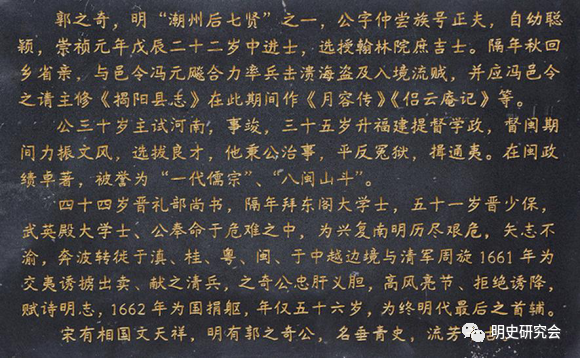 郭之奇，明“潮州后七贤”之一，公字仲尝族号正夫，自幼聪
颖，崇祯元年戊辰二十二岁中进士，选授翰林院庶吉士。隔年秋回
乡省亲，与邑令冯元飚合力率兵击溃海盗及入境流贼，并应冯邑令
之请主修《揭阳县志》在此期间作《月容传》《侣云庵记》等。
公三十岁主试河南，事竣，三十五岁升福建提督学政，督闽期
间力振文风，选拔良才，他秉公治事，平反冤狱，揖通夷。在闽政
绩卓著，被誉为“一代儒宗”、“八闽山斗”。
四十四岁晋礼部尚书，隔年拜东阁大学士，五十一岁晋少保，
武英殿大学士、公奉命于危难之中，为兴复南明历尽艰危，矢志不
渝，奔波转徙于滇、桂、粤、闽、于中越边境与清军周旋1661年为
交夷诱掳出卖、献之清兵，之奇公忠肝义胆，高风亮节、拒绝诱降，
赋诗明志，1662年为国捐躯，年仅五十六岁，为终明代最后之首辅。
宋有相国文天祥，明有郭之奇公，名垂青史，流芳
明史研究会